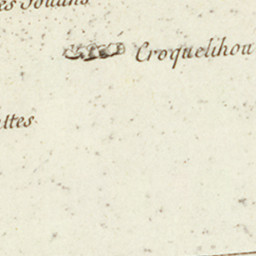 es Jouans
Croquelihou
ttes